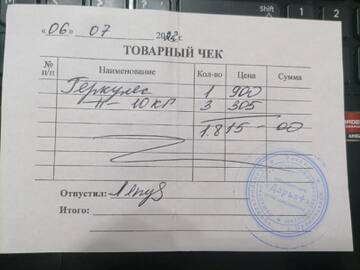 «06» 07 2022г.
ТОВАРНЫЙ ЧЕК
№ п/п Наименование Кол-во Цена Сумма
Геркулес 1 900
Н- 10 кг 3 305
1.815-00
Отпустил:
Итого:
Shift